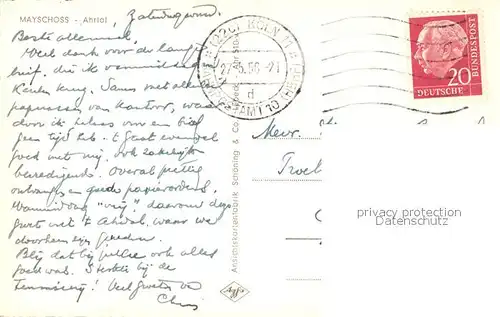 MAYSCHOSS - Ahrtal
Zaterdagavond.
Beste allemaal,
Veel dank voor de lange
brief, die ik vanmiddag
Keulen kreeg. Samen met allerlei
paperassen van kantoor, waar-
door ik helaas voor een brief
geen tijd heb. 't gaat evenwel
goed met mij, ook zakelijk
bevredigend. Overal prettig
ontvangen en goede papierorders.
Vanmiddag "vrij", daarom deze
groet uit 't Ahrdal, waar we
doorheen zijn gereden.
Blij dat bij jullie ook alles
goed was. Sterkte bij de
Veel groeten van
Chris
KÖLN
d
Ansichtskartenfabrik Schöning & Co
Agfa
DEUTSCHE
BUNDESPOST
20
Mevr.
privacy protection
Datenschutz